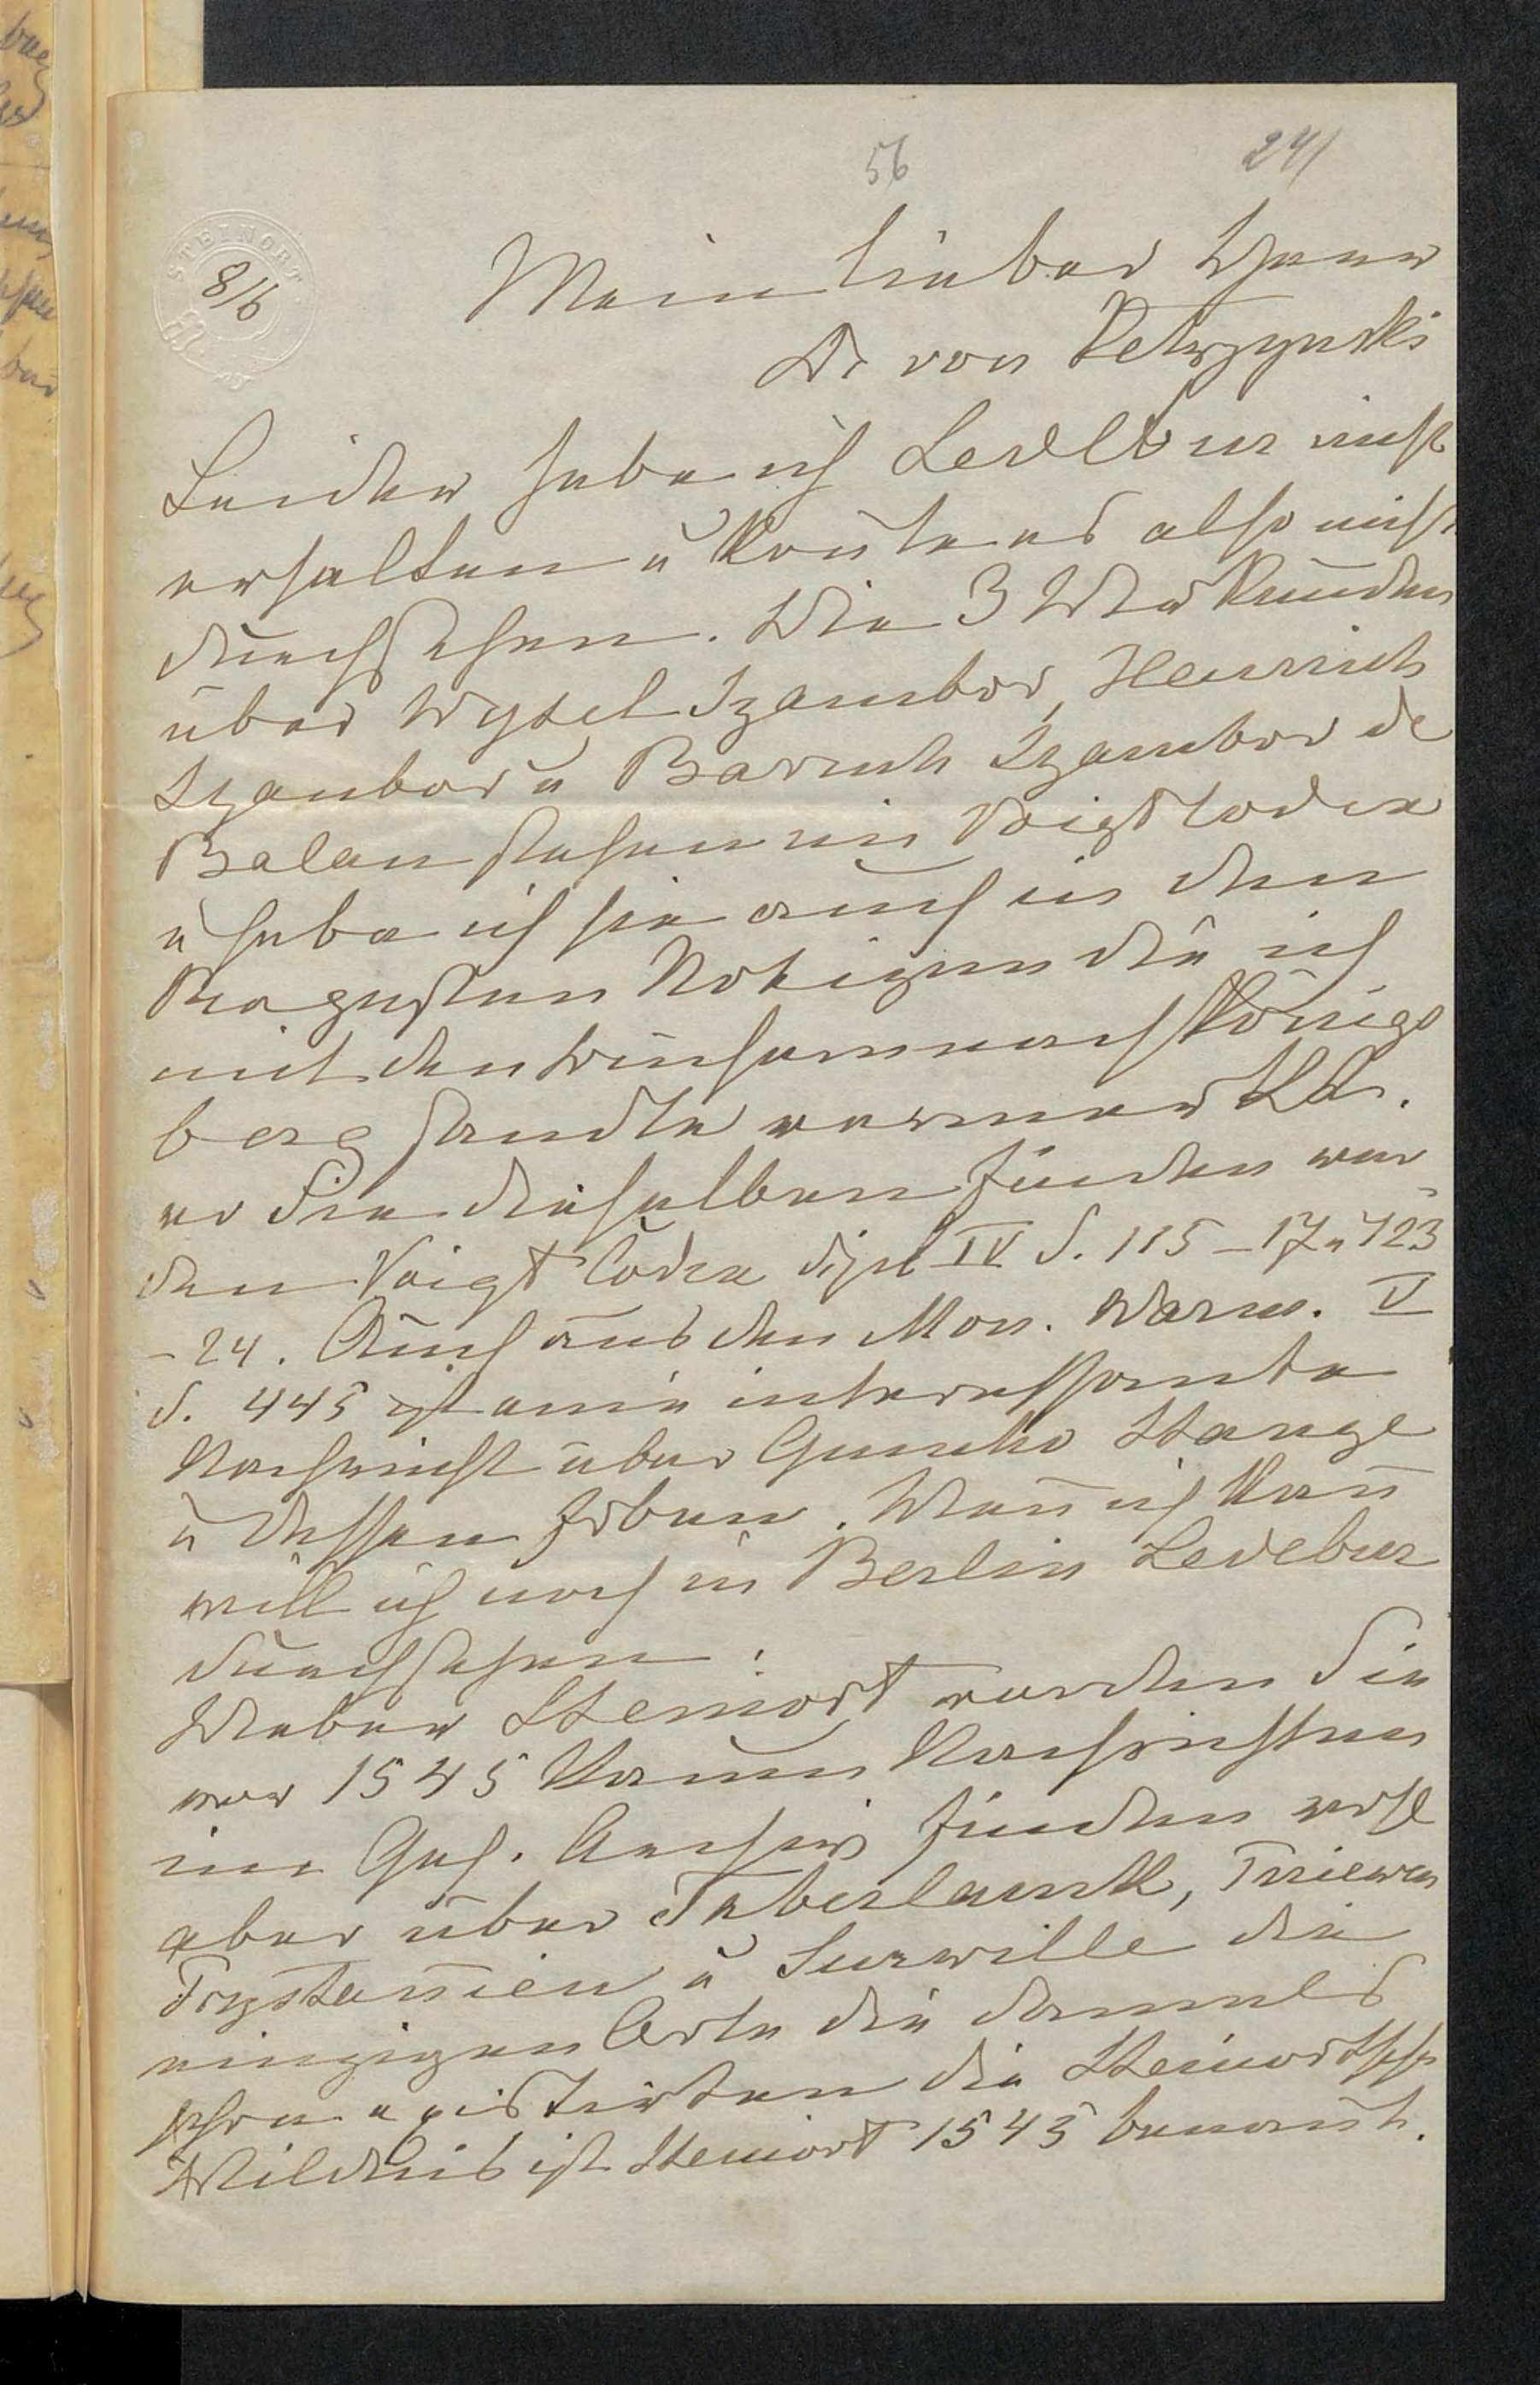 56 241
STEINORT
8/6
Mein lieber Herr
Dr von Ketrzynski
Leider habe ich Ledebur nicht
erhalten u konte es also nicht
durchsehen. Die 3 Urkunden
über Wysel Szambor, Heinrich
Szambor u Barruch Szambor de
Balau stehen im Voigt Codex
u habe ich sie auch in den
Notizen die ich
mit den Büchern nach Königs
berg sandte vermerkt
wo Sie dieselben finden wer-
den Voigt Codex dipl IV S. 115 – 17 u 123
– 24. Auch aus den Mon. Warm. V
S. 445 ist eine interessante
Nachricht über Stange
u dessen Erben. Wenn ich kann
will ich noch in Berlin Ledebur
durchsehen.
Ueber Steinort werden Sie
vor 1545 kaum Nachrichten
im Geh. Archiv finden wohl
aber über Taberlauk,
u Surwille die
einzigen Orte die damals
schon existirten die Steinortsche
Wildnis ist Steinort 1545 benant.